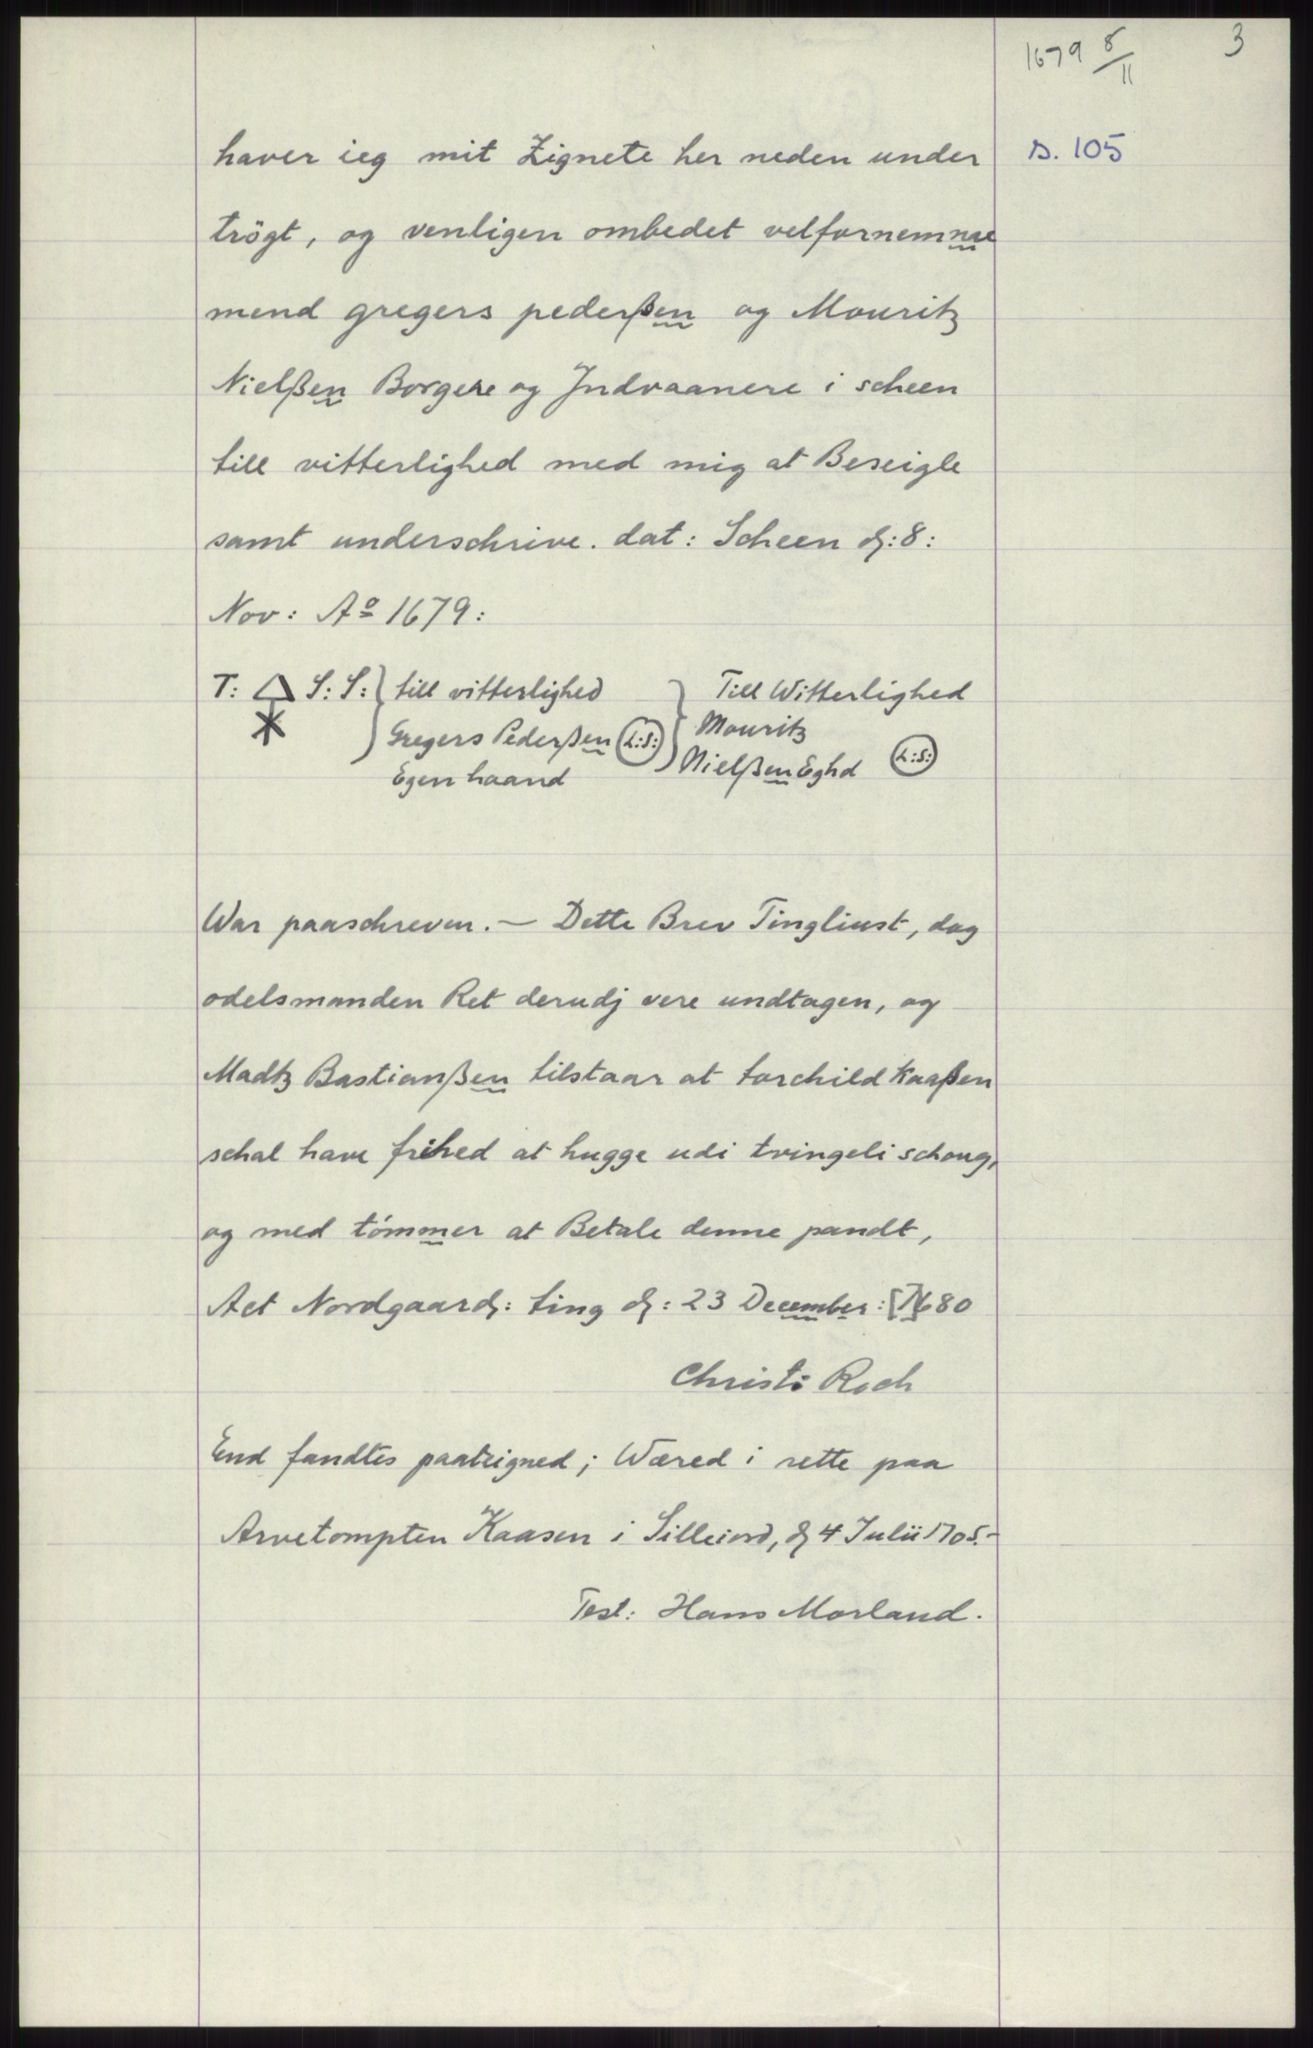 1679 8/11
3
s. 105
haver ieg mit Zignete her neden under
trögt, og venligen ombedet velfornemnae
mend gregers pederßen og Mouritz
Nielßen Borgere og Jndvaanere i scheen
till vitterlighed med mig at Beseigle
samt underschrive. dat: Scheen dȷ: 8:
Nov: Aº 1679:
T: S: S: till vitterlighed
Gregers Pederßen L:S:
Egen haand
Till Witterlighed
Mouritz
Nielßen Eghd L:S:
War paaschreven. — Dette Brev Tingliust, dog
odelsmanden Ret derudj vere undtagen, og
Madtz Bastianßen tilstaar at torchild Kaaßen
schal have frihed at hugge udi tvingeli schoug,
og med tömmer at Betale denne pandt,
Act Nordgaardȷ: ting dȷ: 23 December: [1]680
Christ: Roch
End fandtes paateigned; Wæred i rette paa
Arvetompten Kaasen i Silleiord, dȷ 4 Julii 1705.-
Test: Hans Morland.